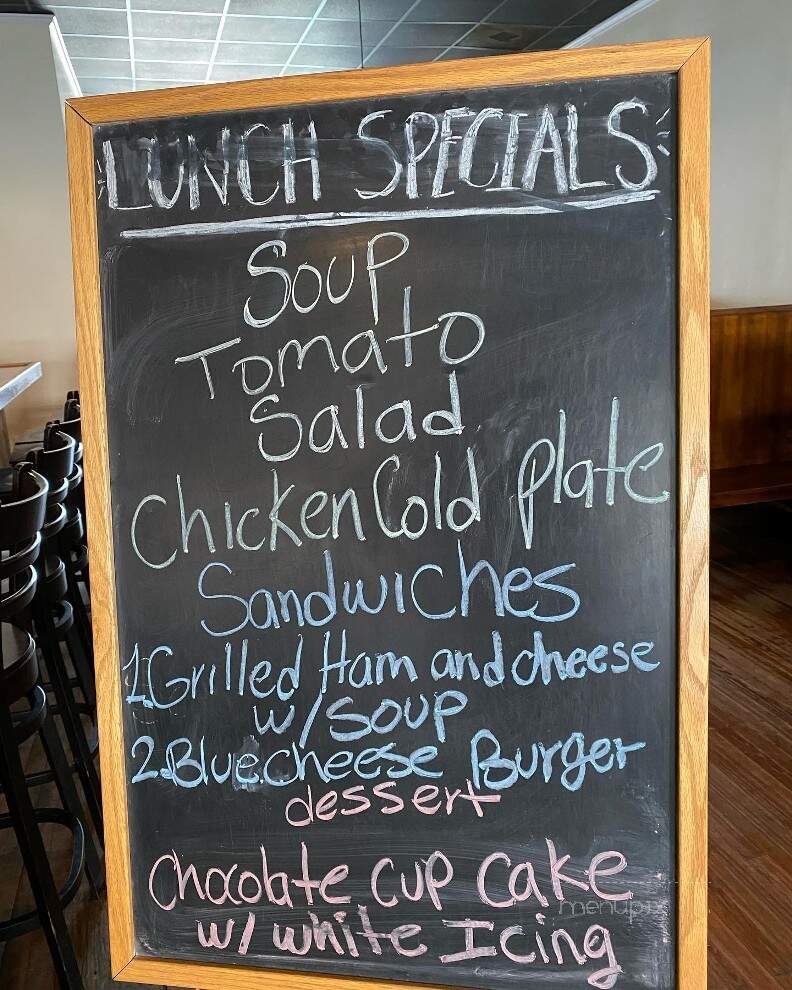 LUNCH SPECIALS
Soup
Tomato
Salad
Chicken Cold plate
Sandwiches
1.Grilled Ham and cheese
w/soup
2.Blue cheese Burger
dessert
Chocolate cup cake
w/ white Icing